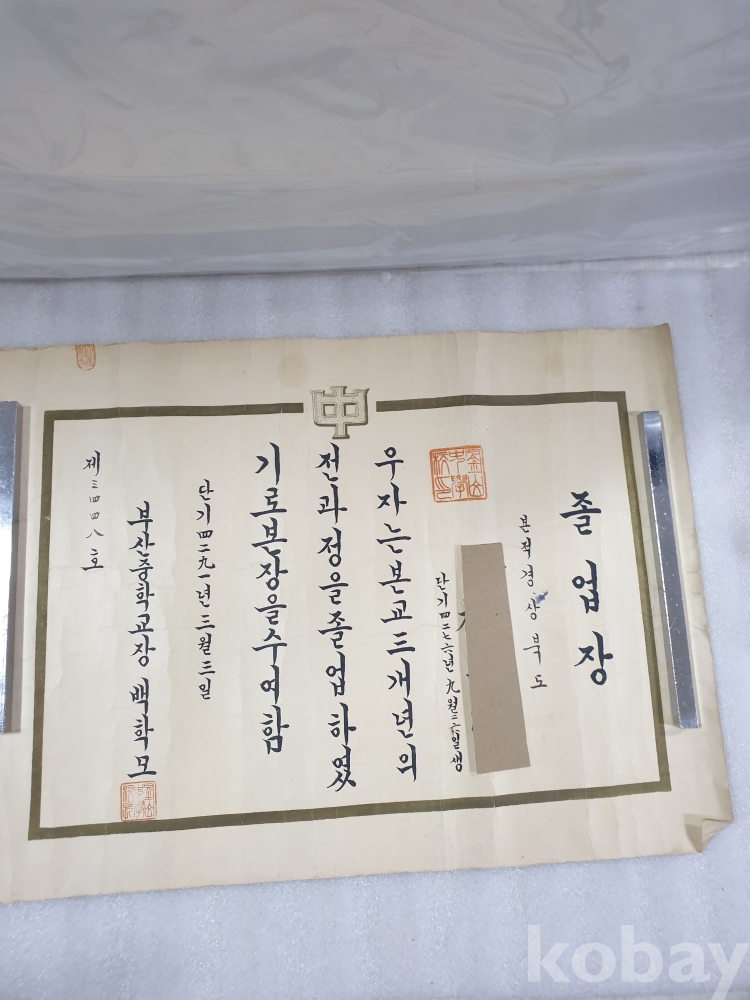 졸업장
본적 경상북도
단기四二七六년 九월二六일생
우자는본교三개년의
전과정을졸업하였
기로본장을수여함
단기四二九一년 三월三일
부산중학교장 백학모
제三四四八호
中
kobay